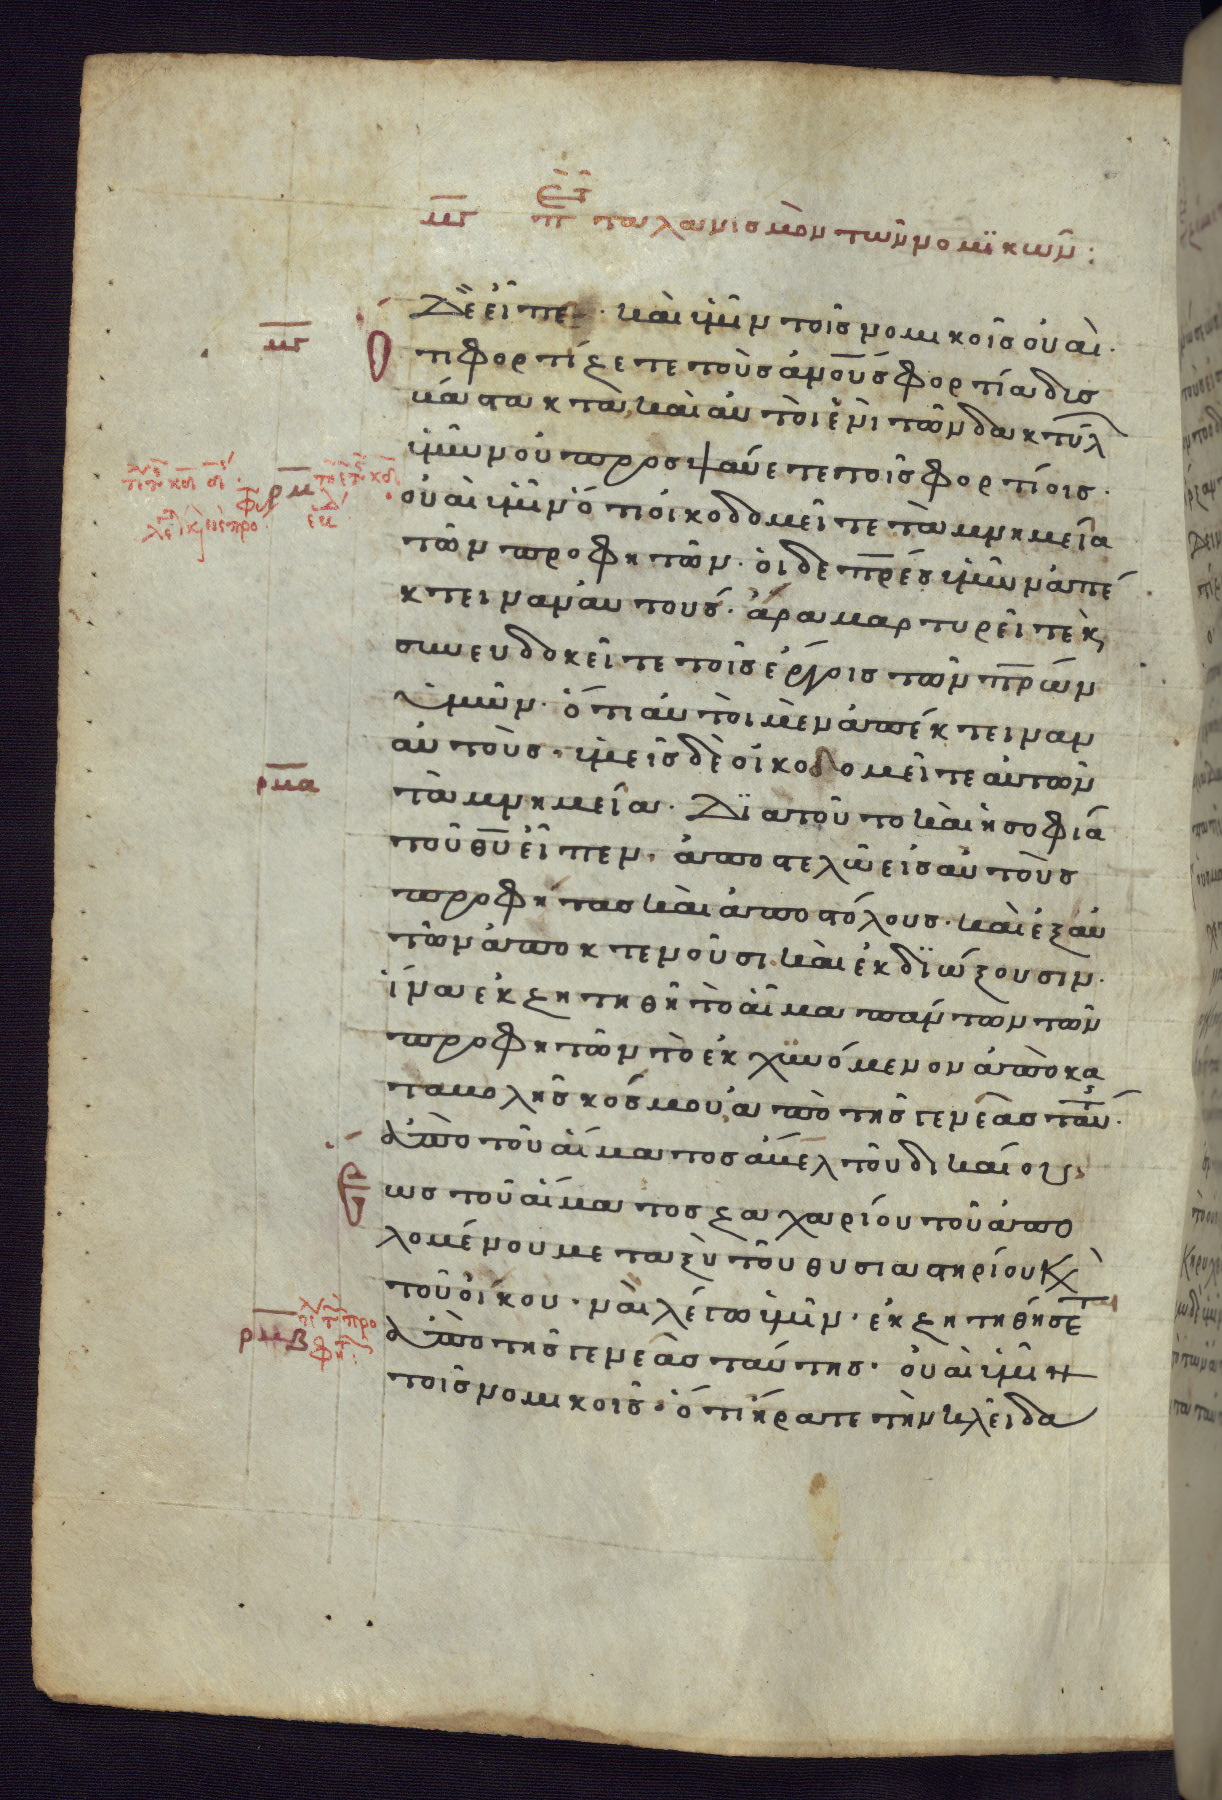 μϛ π ταλανισμὸν τῶν νομικῶν:
Δὲ εἶπε· καὶ ὑμῖν τοῖς νομικοῖς οὐαὶ·
μϛ Ὅτι φορτίζετε τοὺς ἀνους φορτία δυσ
βάστακτα, καὶ αὐτοὶ ἑνὶ τῶν δακτύλ
ὑμῶν οὐ προσψαύετε τοῖς φορτίοις·
ρμ οὐαὶ ὑμῖν ὅτι οἰκοδομεῖτε τὰ μνημεῖα
τῶν προφητῶν· οἱ δε πρες ὑμῶν ἀπέ
κτειναν αὐτούς· ἄρα μαρτυρεῖτε κ
συνευδοκεῖτε τοῖς ἔργοις τῶν πρων
ὑμῶν· ὅτι αὐτοὶ μὲν ἀπέκτειναν
αὐτοὺς· ὑμεῖς δὲ οἰκοδομεῖτε αὐτῶν
ρμα τὰ μνημεῖα· Διατοῦτο καὶ ἡ σοφία
τοῦ θυ εἶπεν· ἀποστελῶ εἰς αὐτοὺς
προφήτας καὶ ἀποστόλους· καὶ ἐξ αὐ
τῶν ἀποκτενοῦσι καὶ ἐκδϊώξουσιν·
ἵνα ἐκζητηθῆ τὸ αἷμα πάντων τῶν
προφητῶν τὸ ἐκχυνόμενον ἀπὸ κα
ταβολῆς κόσμου ἀπὸ τῆς γενεᾶς ταύτ·
Ἀπὸ τοῦ αἵματος ἄβελ τοῦ δικαίου
Ἕως τοῦ αἵματος ζαχαρίου τοῦ ἀπο
λομένου μεταξὺ τοῦ θυσιαστηρίου κ
τοῦ οἴκου· ναὶ λέγω ὑμῖν· ἐκζητηθήσε
ρμβ Ἀπὸ τῆς γενεᾶς ταύτης· οὐαὶ ὑμῖν
τοῖς νομικοῖς· ὅτι ἤρατε τὴν κλεῖδα